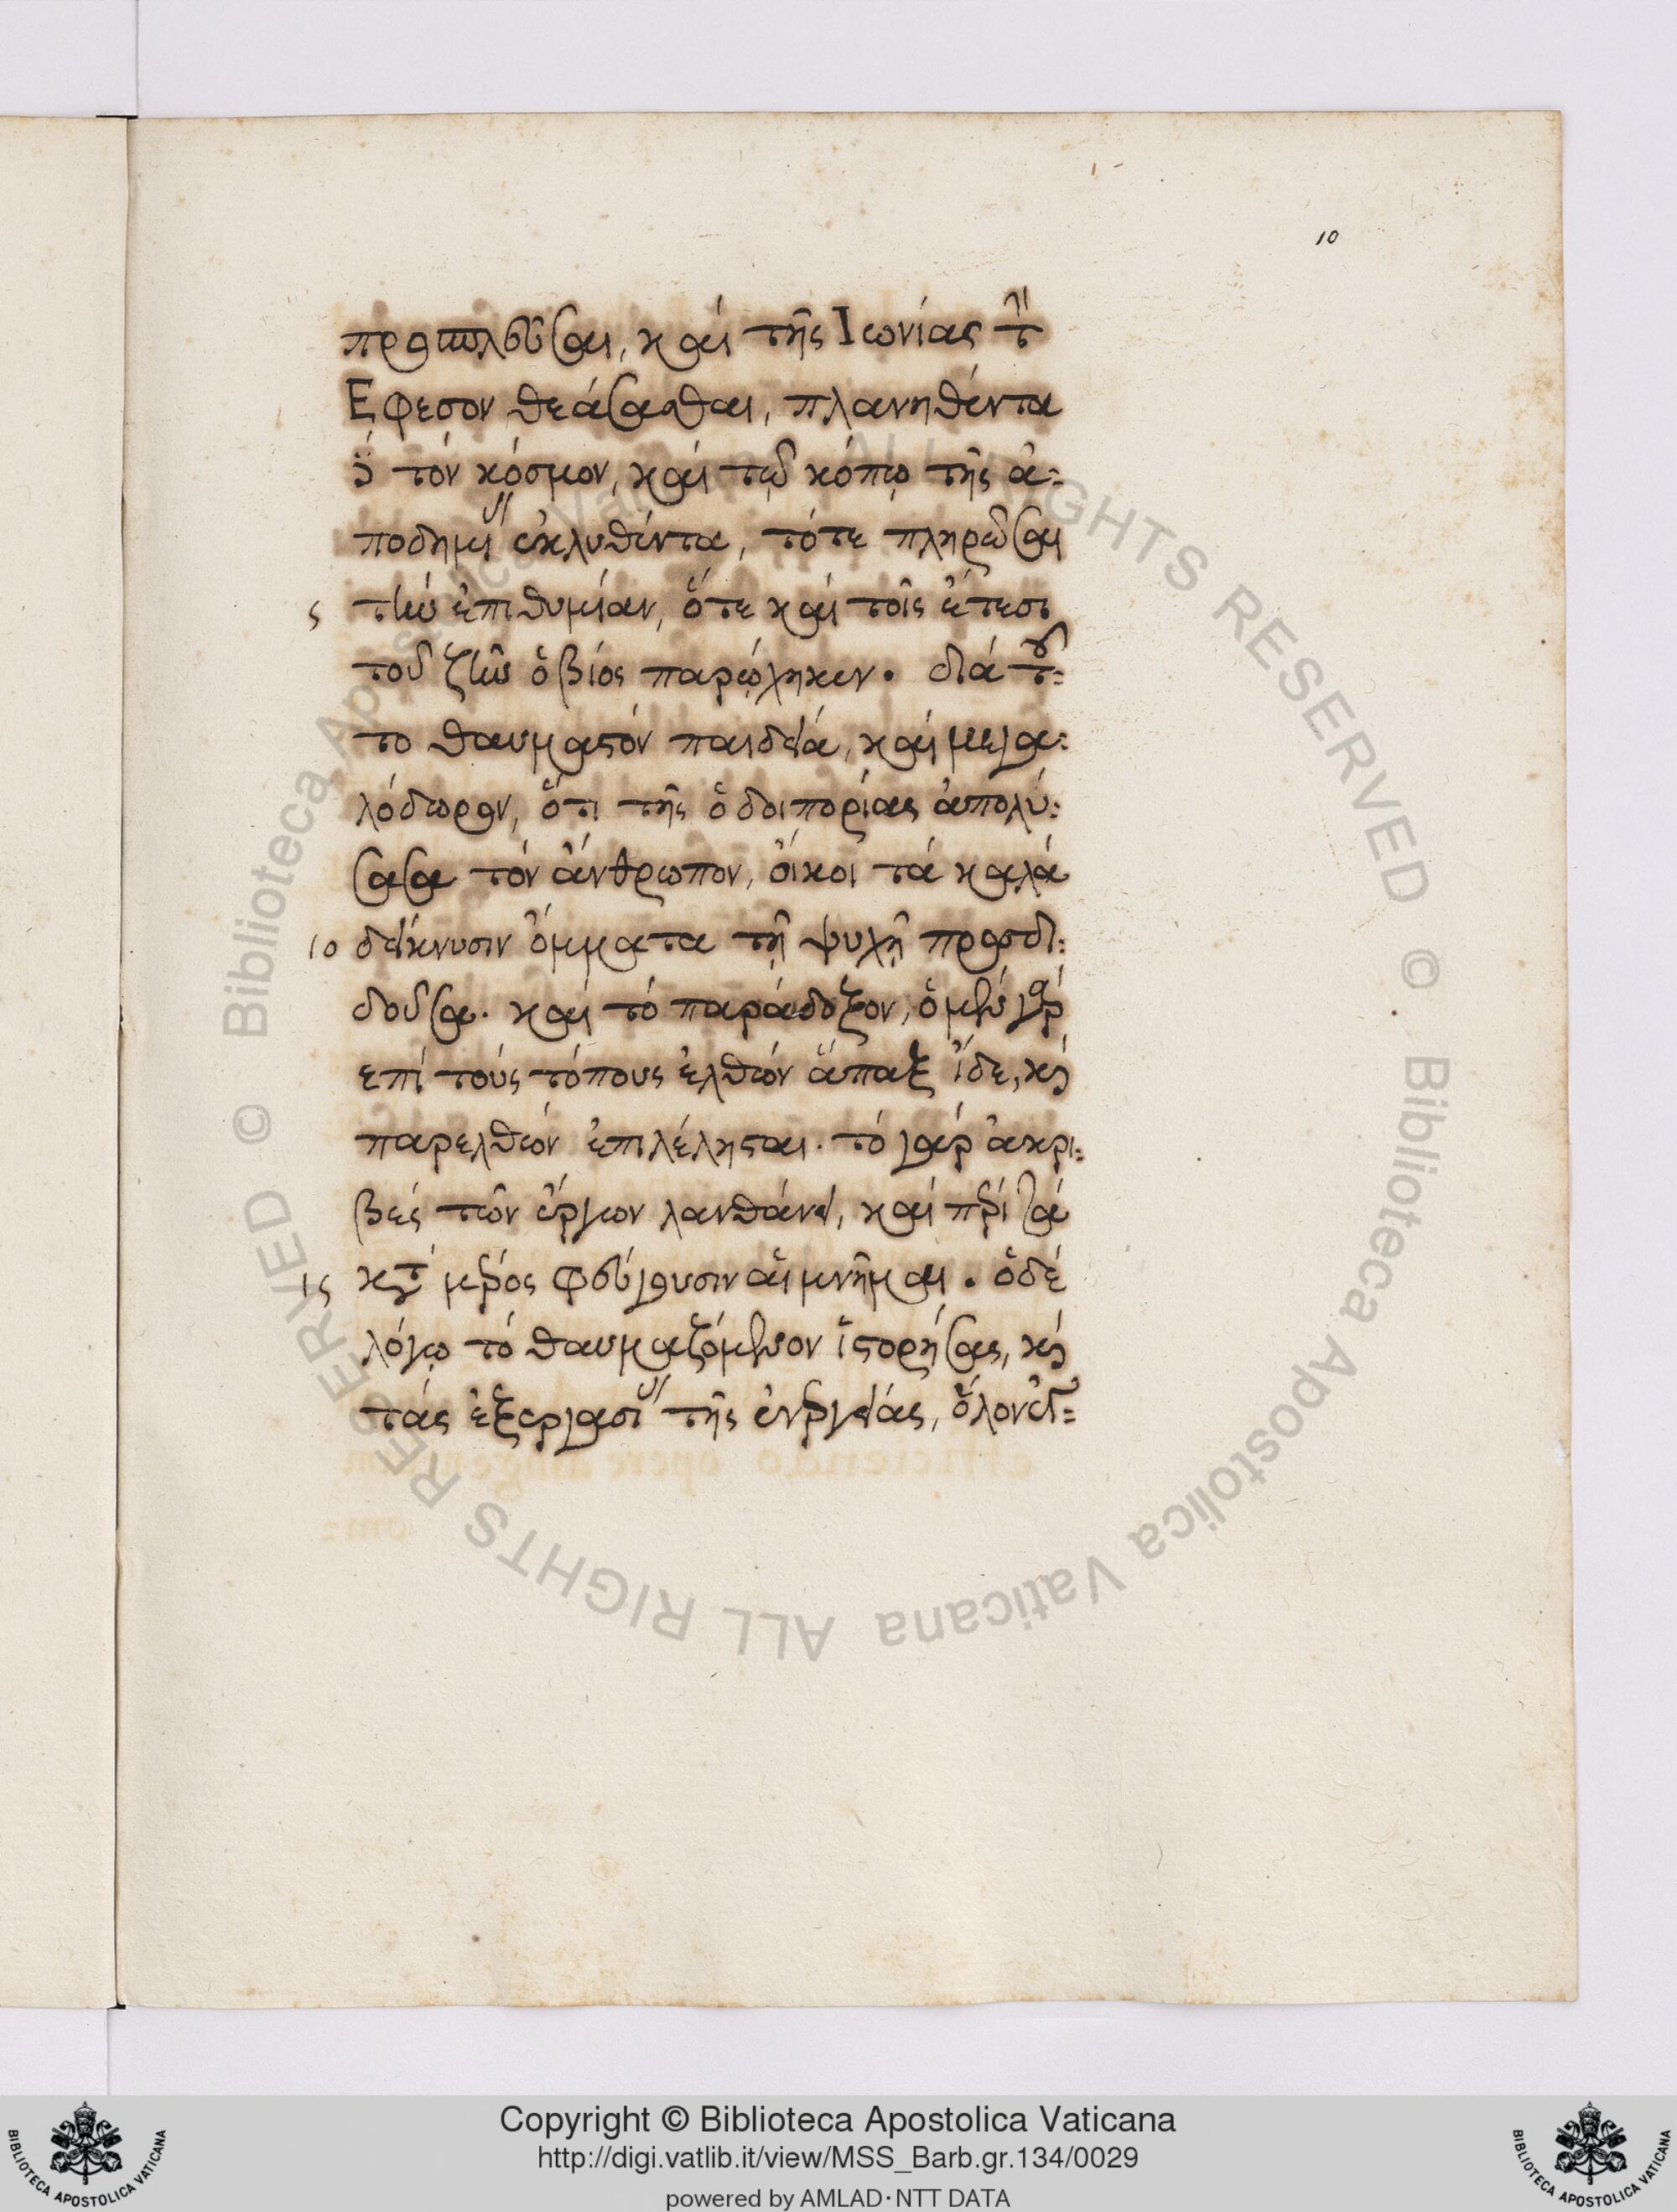 10
προσπλεῦσαι, καὶ τῆς Ἰωνίας τὴν
Ἔφεσον θεάσασθαι, πλανηθέντα
δὲ τόν κόσμον, καί τῷ κόπῳ τῆς ἀ=
ποδημίας ἐκλυθέντα, τότε πληρῶσαι
5 τὴν ἐπιθυμίαν, ὅτε καί τοῖς ἔτεσι
τοῦ ζῆν ὁ βίος παρῴχηκεν. διά τοῦ=
το θαυμαστόν παιδεία, καί μεγα=
λόδωρον, ὅτι τῆς ὁδοιπορίας ἀπολύ=
σασα τόν ἄνθρωπον, οἴκοι τά καλά
10 δείκνυσιν ὄμματα τῇ ψυχῇ προσδι=
δοῦσα. καί τό παράδοξον, ὁ μέν γάρ
ἐπί τούς τόπους ἐλθών ἅπαξ ἴδε, καί
παρελθών ἐπιλέλησται. τό γάρ ἀκρι=
βές τῶν ἔργων λανθάνει, καί περί τά
15 κατά μέρος φεύγουσιν αἱ μνῆμαι. ὁ δέ
λόγῳ τό θαυμαζόμενον ἱστορήσας, καί
τάς ἐξεργασίας τῆς ἐνεργείας, ὅλον ἐν=
Copyright © Biblioteca Apostolica Vaticana
http://digi.vatlib.it/view/MSS_Barb.gr.134/0029
powered by AMLAD·NTT DATA
BIBLIOTECA APOSTOLICA VATICANA
BIBLIOTECA APOSTOLICA VATICANA
© Biblioteca Apostolica Vaticana ALL RIGHTS RESERVED
© Biblioteca Apostolica Vaticana ALL RIGHTS RESERVED